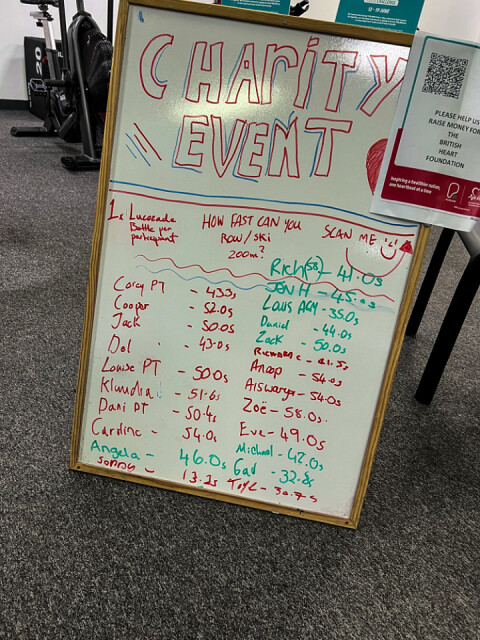 12 - 19 JUNE
CHARITY
EVENT
PLEASE HELP US
RAISE MONEY FOR
THE
BRITISH
HEART
FOUNDATION
Inspiring a healthier nation,
one heartbeat at a time
1x Lucozade
Bottle per
participant
HOW FAST CAN YOU
ROW/SKI
200m?
SCAN ME
Corey PT - 43.3s
Cooper - 52.0s
Jack - 50.0s
Dol - 43.0s
Louise PT - 50.0s
Klaudia - 51.6s
Dani PT - 50.4s
Cardine - 54.0s
Angela - 46.0s
Sonny - 13.1s
Rich(58) - 41.0s
Jen H - 45.0s
Louis AGM - 35.0s
Daniel - 44.0s
Zack - 50.0s
Richard c - 41.5s
Anoop - 54.0s
Aiswarya - 54.0s
Zoë - 58.0s
Eve - 49.0s
Michael - 42.0s
Gad - 32.8s
- 30.7s